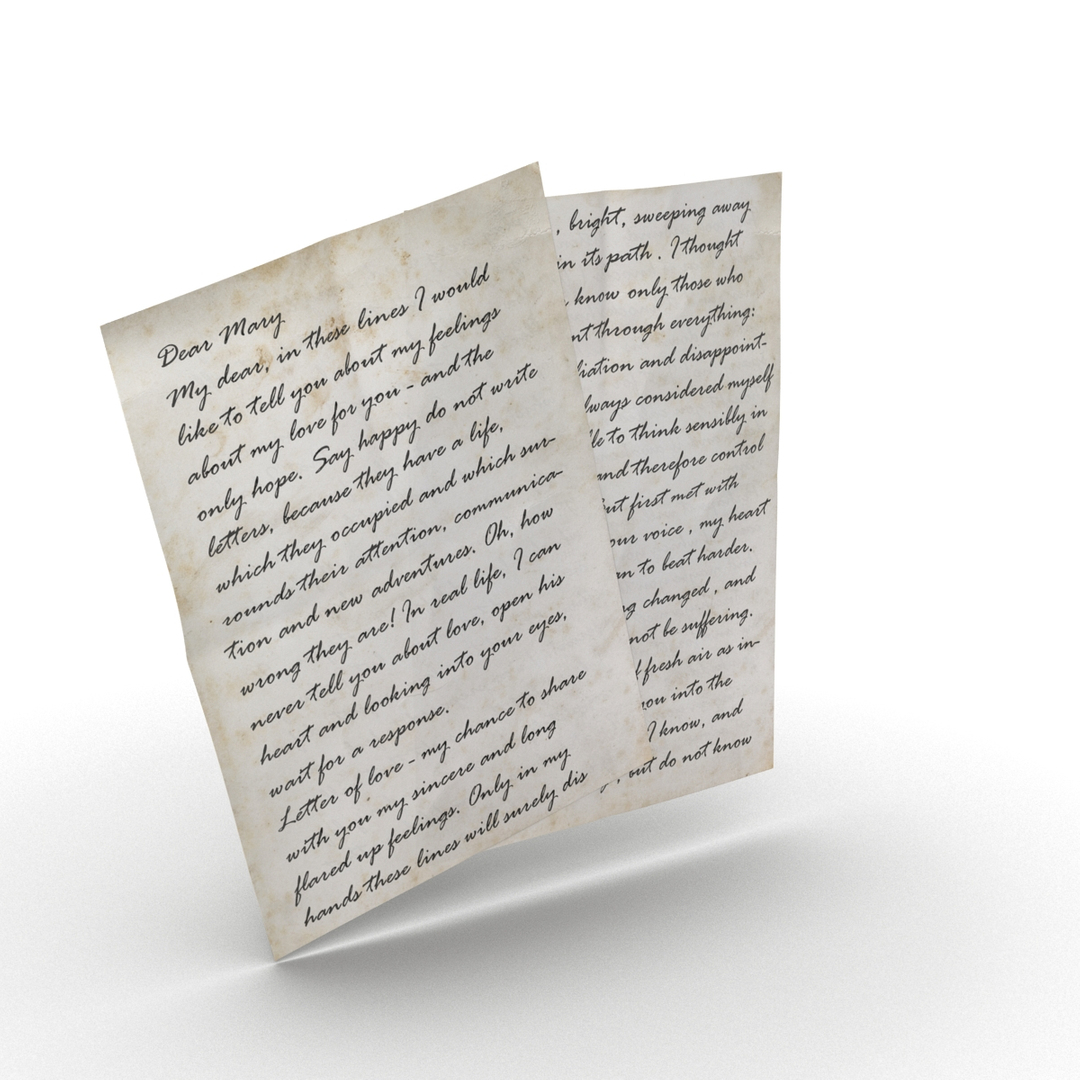 Dear Mary
My dear, in these lines I would
like to tell you about my feelings
about my love for you - and the
only hope. Say happy do not write
letters, because they have a life,
which they occupied and which sur-
rounds their attention, communica-
tion and new adventures. Oh, how
wrong they are! In real life, I can
never tell you about love, open his
heart and looking into your eyes,
wait for a response.
Letter of love - my chance to share
with you my sincere and long
flared up feelings. Only in my
hands these lines will surely dis
, bright, sweeping away
in its path . I thought
know only those who
through everything:
and disappoint-
considered myself
to think sensibly in
and therefore control
first met with
voice , my heart
to beat harder.
changed , and
not be suffering.
fresh air as in-
into the
I know, and
, but do not know